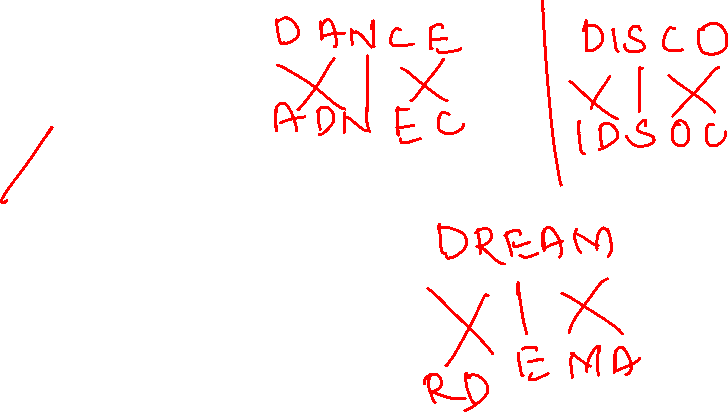 DANCE
ADNEC
DISCO
IDSOC
DREAM
RDEMA